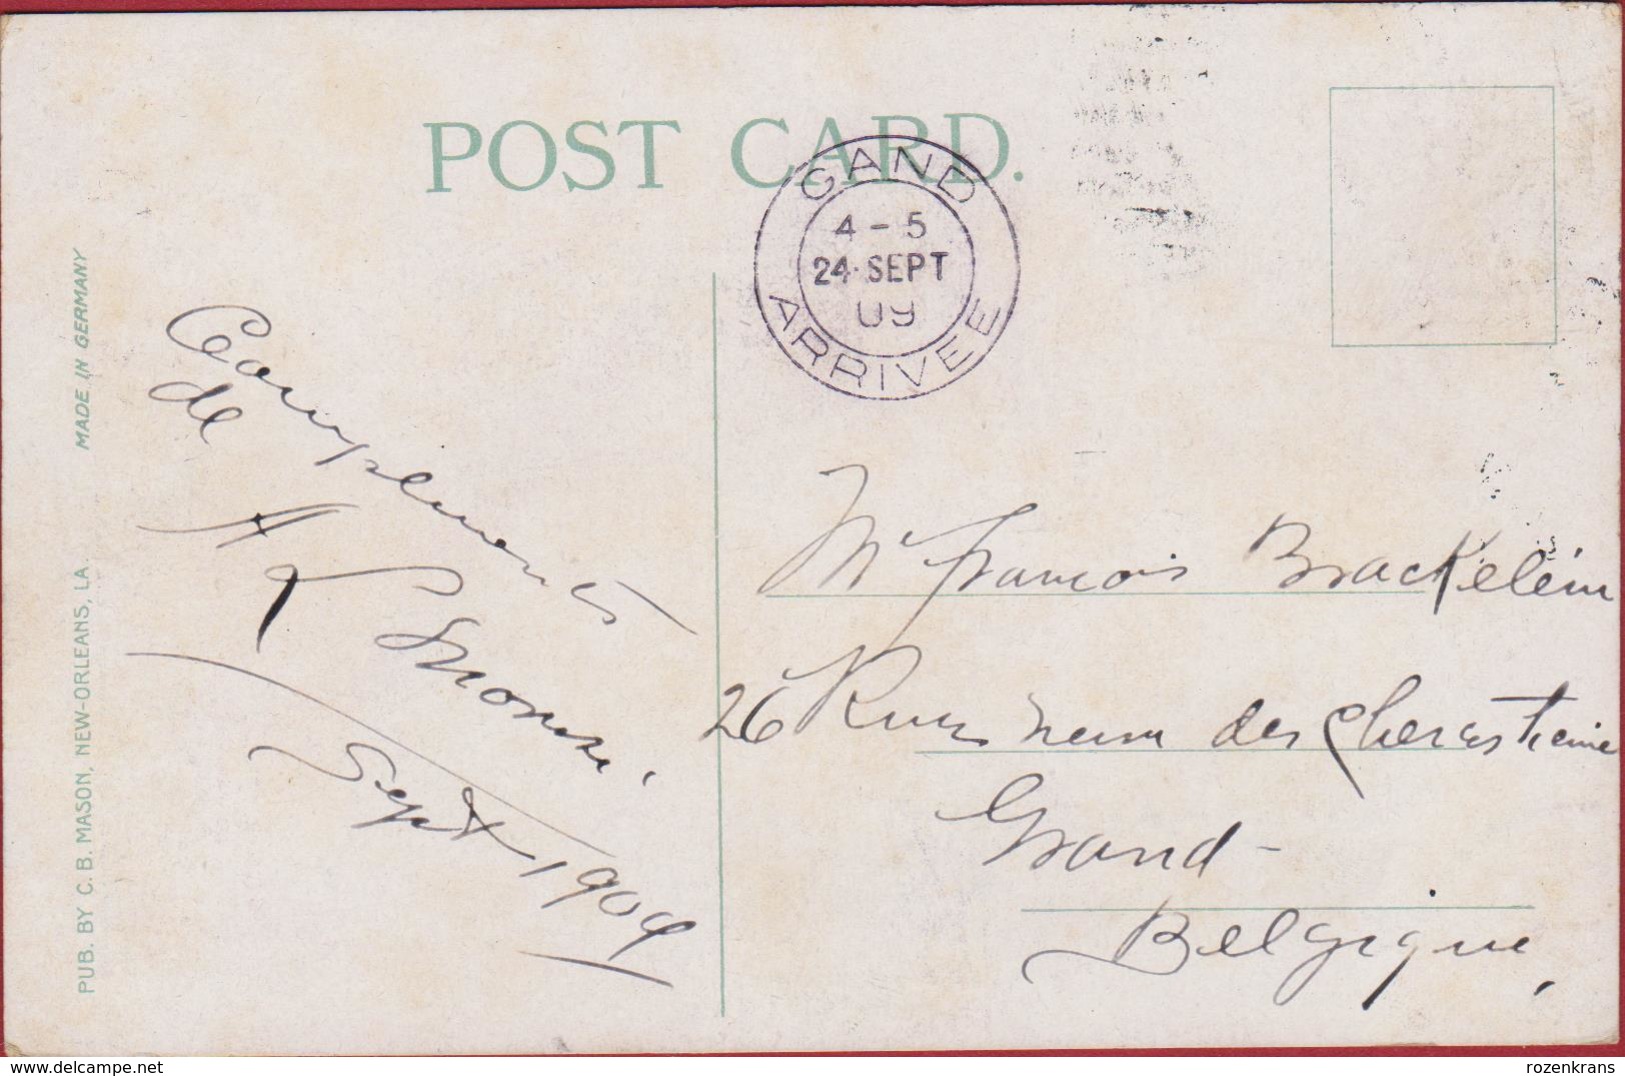 POST CARD.
GAND
4 - 5
24 SEPT
09
ARRIVEE
MADE IN GERMANY
PUB. BY C. B. MASON, NEW-ORLEANS, LA.
Compliments
de
Sept 1909
Mr François
26 Rue des
Gand -
Belgique,
delcampe.net
rozenkrans